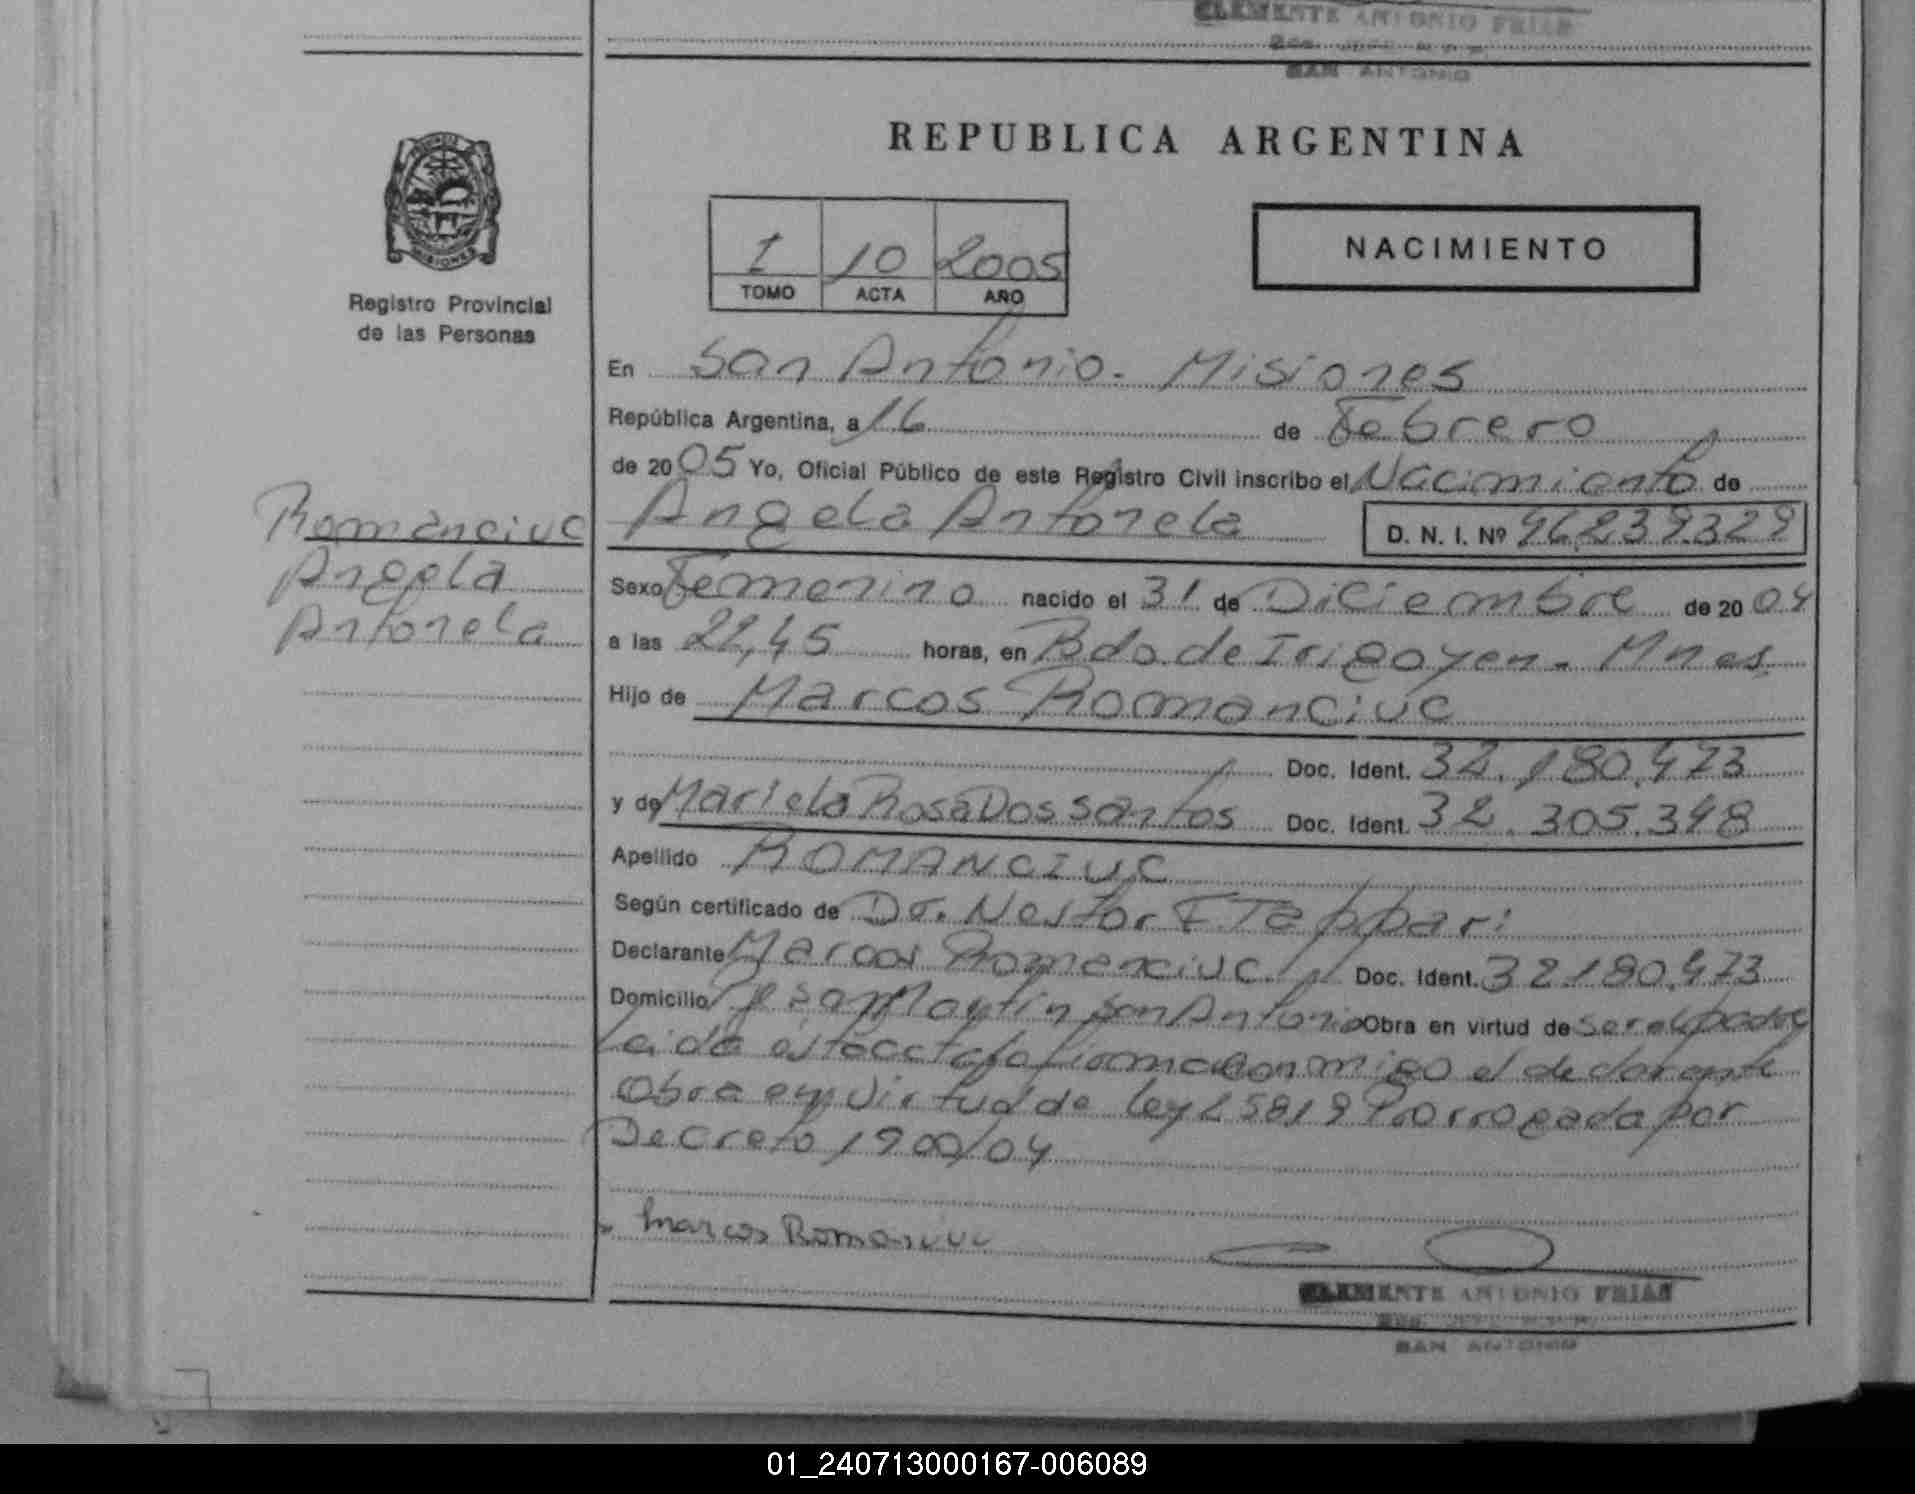 CLEMENTE ANTONIO FRIAS
SAN ANTONIO
REPUBLICA ARGENTINA
PROVINCIA
MISIONES
Registro Provincial
de las Personas
I 10 2005
TOMO ACTA AÑO
NACIMIENTO
En San Antonio. Misiones
República Argentina, a 16 de Febrero
de 2005 Yo, Oficial Público de este Registro Civil inscribo el Nacimiento de
Romanciuc
Angela
Antonela
Angela Antonela D. N. I. Nº 46.239.329
Sexo Femenino nacido el 31 de Diciembre de 2004
a las 22,45 horas, en Bdo. de Irigoyen. Mnes.
Hijo de Marcos Romanciuc
Doc. Ident. 32.180.473
y de Mariela Rosa Dos santos Doc. Ident. 32.305.348
Apellido ROMANCIUC
Según certificado de Dr. Nestor F. Tappari
Declarante Marcos Romanciuc Doc. Ident. 32180.473
Domicilio San Martin San Antonio Obra en virtud de ser el padre
Leida esta acta la firma conmigo el declarante
Obra en virtud de ley 25819 Prorrogada por
Decreto 1900/04
Marcos Romaniuc
CLEMENTE ANTONIO FRIAS
SAN ANTONIO
01_240713000167-006089